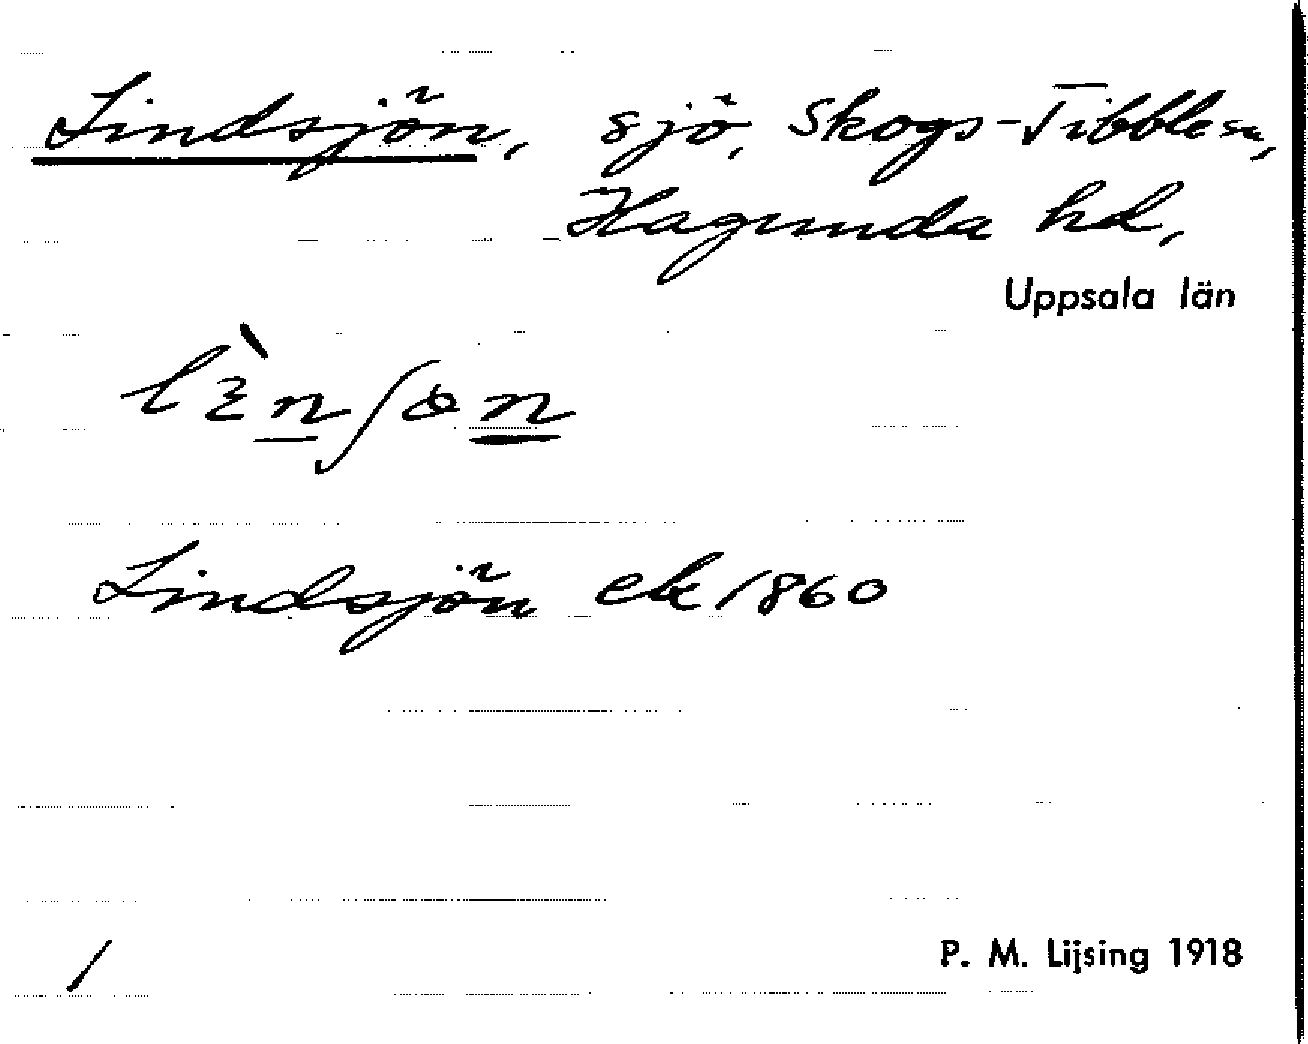 Lindsjön, sjö, Skogs-Tibble sn,
Hagunda hd,
Uppsala län
Lindsjön ek 1860
/
P. M. Lijsing 1918